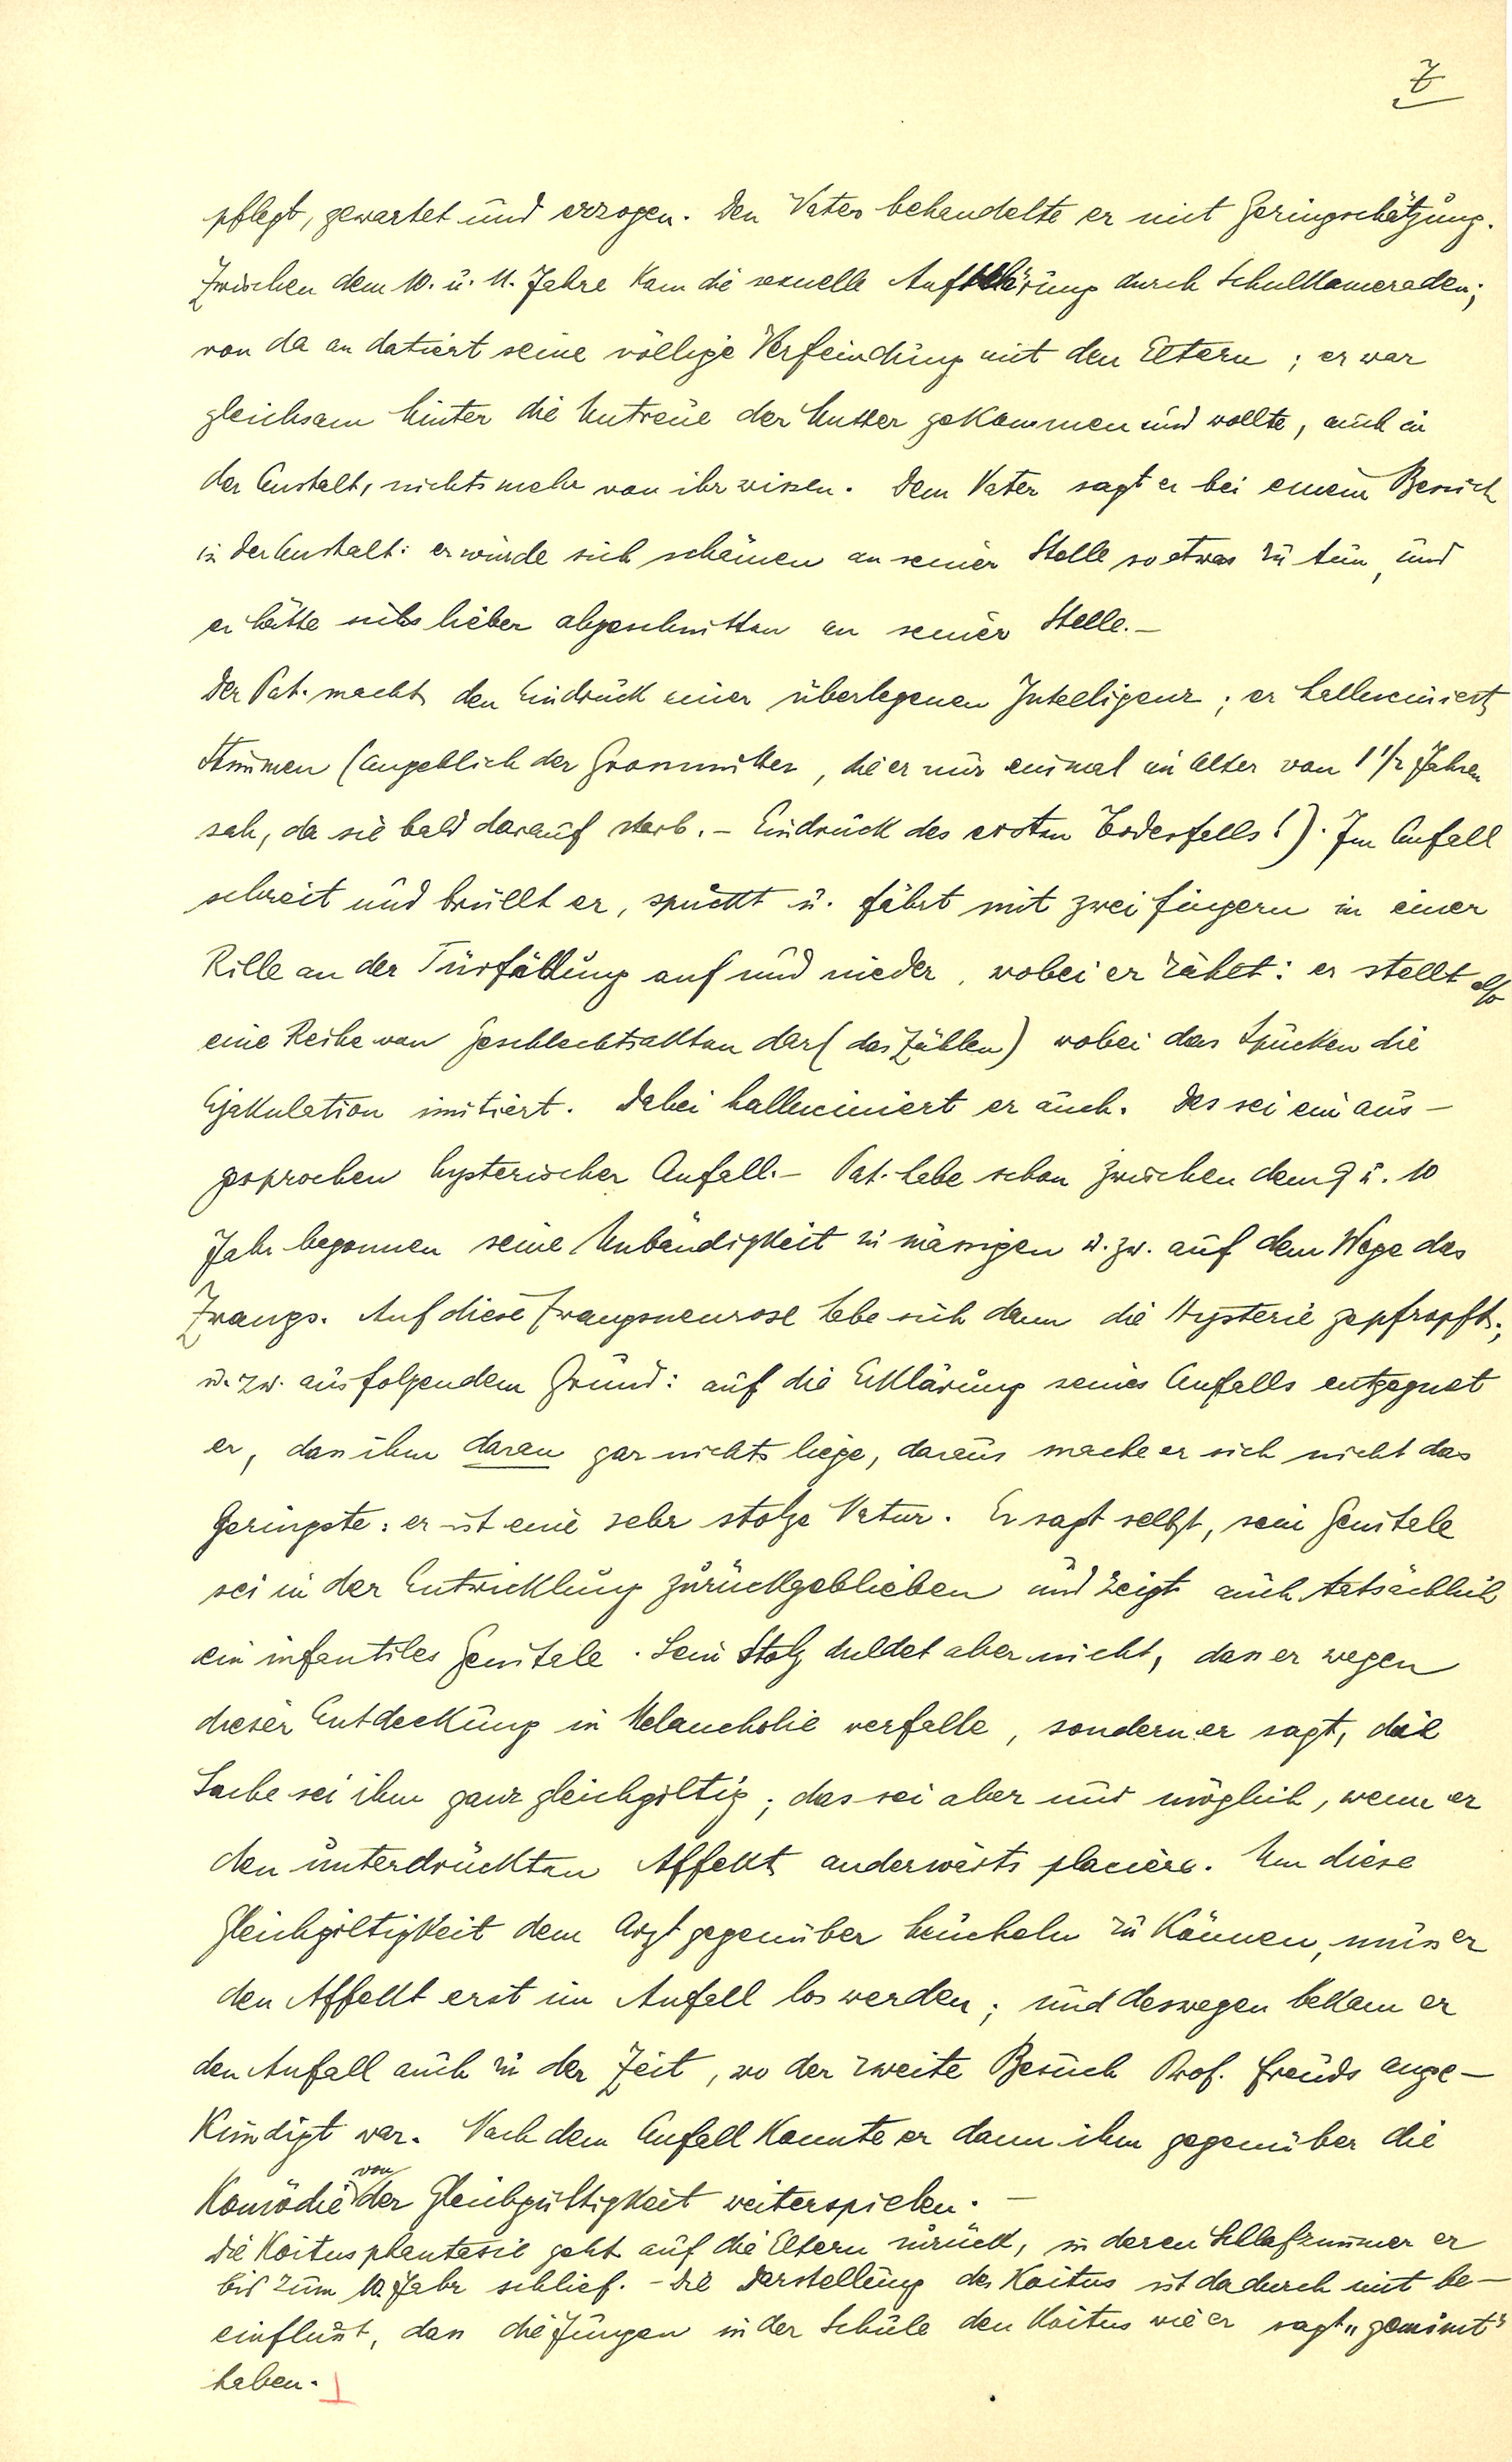 7
pflegt, gewartet und erzogen. Den Vater behandelte er mit Geringschätzung.
Zwischen dem 10. u. 11. Jahre kam die sexuelle Aufklärung durch Schulkameraden;
von da an datiert seine völlige Verfeindung mit den Eltern; er war
gleichsam hinter die Untreue der Mutter gekommen und wollte, auch in
der Anstalt, nichts mehr von ihr wissen. Dem Vater sagt er bei einem Besuch
in der Anstalt: er würde sich schämen an seiner Stelle so etwas zu tun, und
er hätte sichs lieber abgeschnitten an seiner Stelle.—
Der Pat. macht den Eindruck einer überlegenen Intelligenz; er halluciniert
Stimmen (angeblich der Grossmutter, die er nur einmal im Alter von 1 1/2 Jahren
sah, da sie bald darauf starb.- Eindruck des ersten Todesfalls!). Im Anfall
schreit und brüllt er, spuckt u. fährt mit zwei Fingern in einer
Rille an der Türfüllung auf und nieder, wobei er zählt: er stellt also
eine Reihe von Geschlechtsakten dar (das Zählen) wobei das Spucken die
Ejakulation imitiert. Dabei halluciniert er auch. Das sei ein aus-
gesprochen hysterischer Anfall.- Pat. habe schon zwischen dem 9 u. 10
Jahr begonnen seine Unbändigkeit zu mässigen u. zw. auf dem Wege des
Zwangs. Auf diese Zwangsneurose habe sich dann die Hysterie gepfropft;
u. zw. aus folgendem Grund: auf die Erklärung seines Anfalls entgegnet
er, dass ihm daran gar nichts liege, daraus mache er sich nicht das
Geringste: er ist eine sehr stolze Natur. Er sagt selbst, sein Genitale
sei in der Entwicklung zurückgeblieben und zeigt auch tatsächlich
ein infantiles Genitale. Sein Stolz duldet aber nicht, dass er wegen
dieser Entdeckung in Melancholie verfalle, sondern er sagt, die
Sache sei ihm ganz gleichgiltig; das sei aber nur möglich, wenn er
den unterdrückten Affekt anderwärts placiere. Um diese
Gleichgiltigkeit dem Arzt gegenüber heucheln zu können, muss er
den Affekt erst im Anfall los werden; und deswegen bekam er
den Anfall auch zu der Zeit, wo der zweite Besuch Prof. Freuds ange-
kündigt war. Nach dem Anfall konnte er dann ihm gegenüber die
Komödie von der Gleichgültigkeit weiterspielen.—
Die Koitusphantasie geht auf die Eltern zurück, in deren Schlafzimmer er
bis zum 10. Jahr schlief. - Die Darstellung des Koitus ist dadurch mit be-
einflusst, dass die Jungen in der Schule den Koitus wie er sagt „gemimt"
haben.